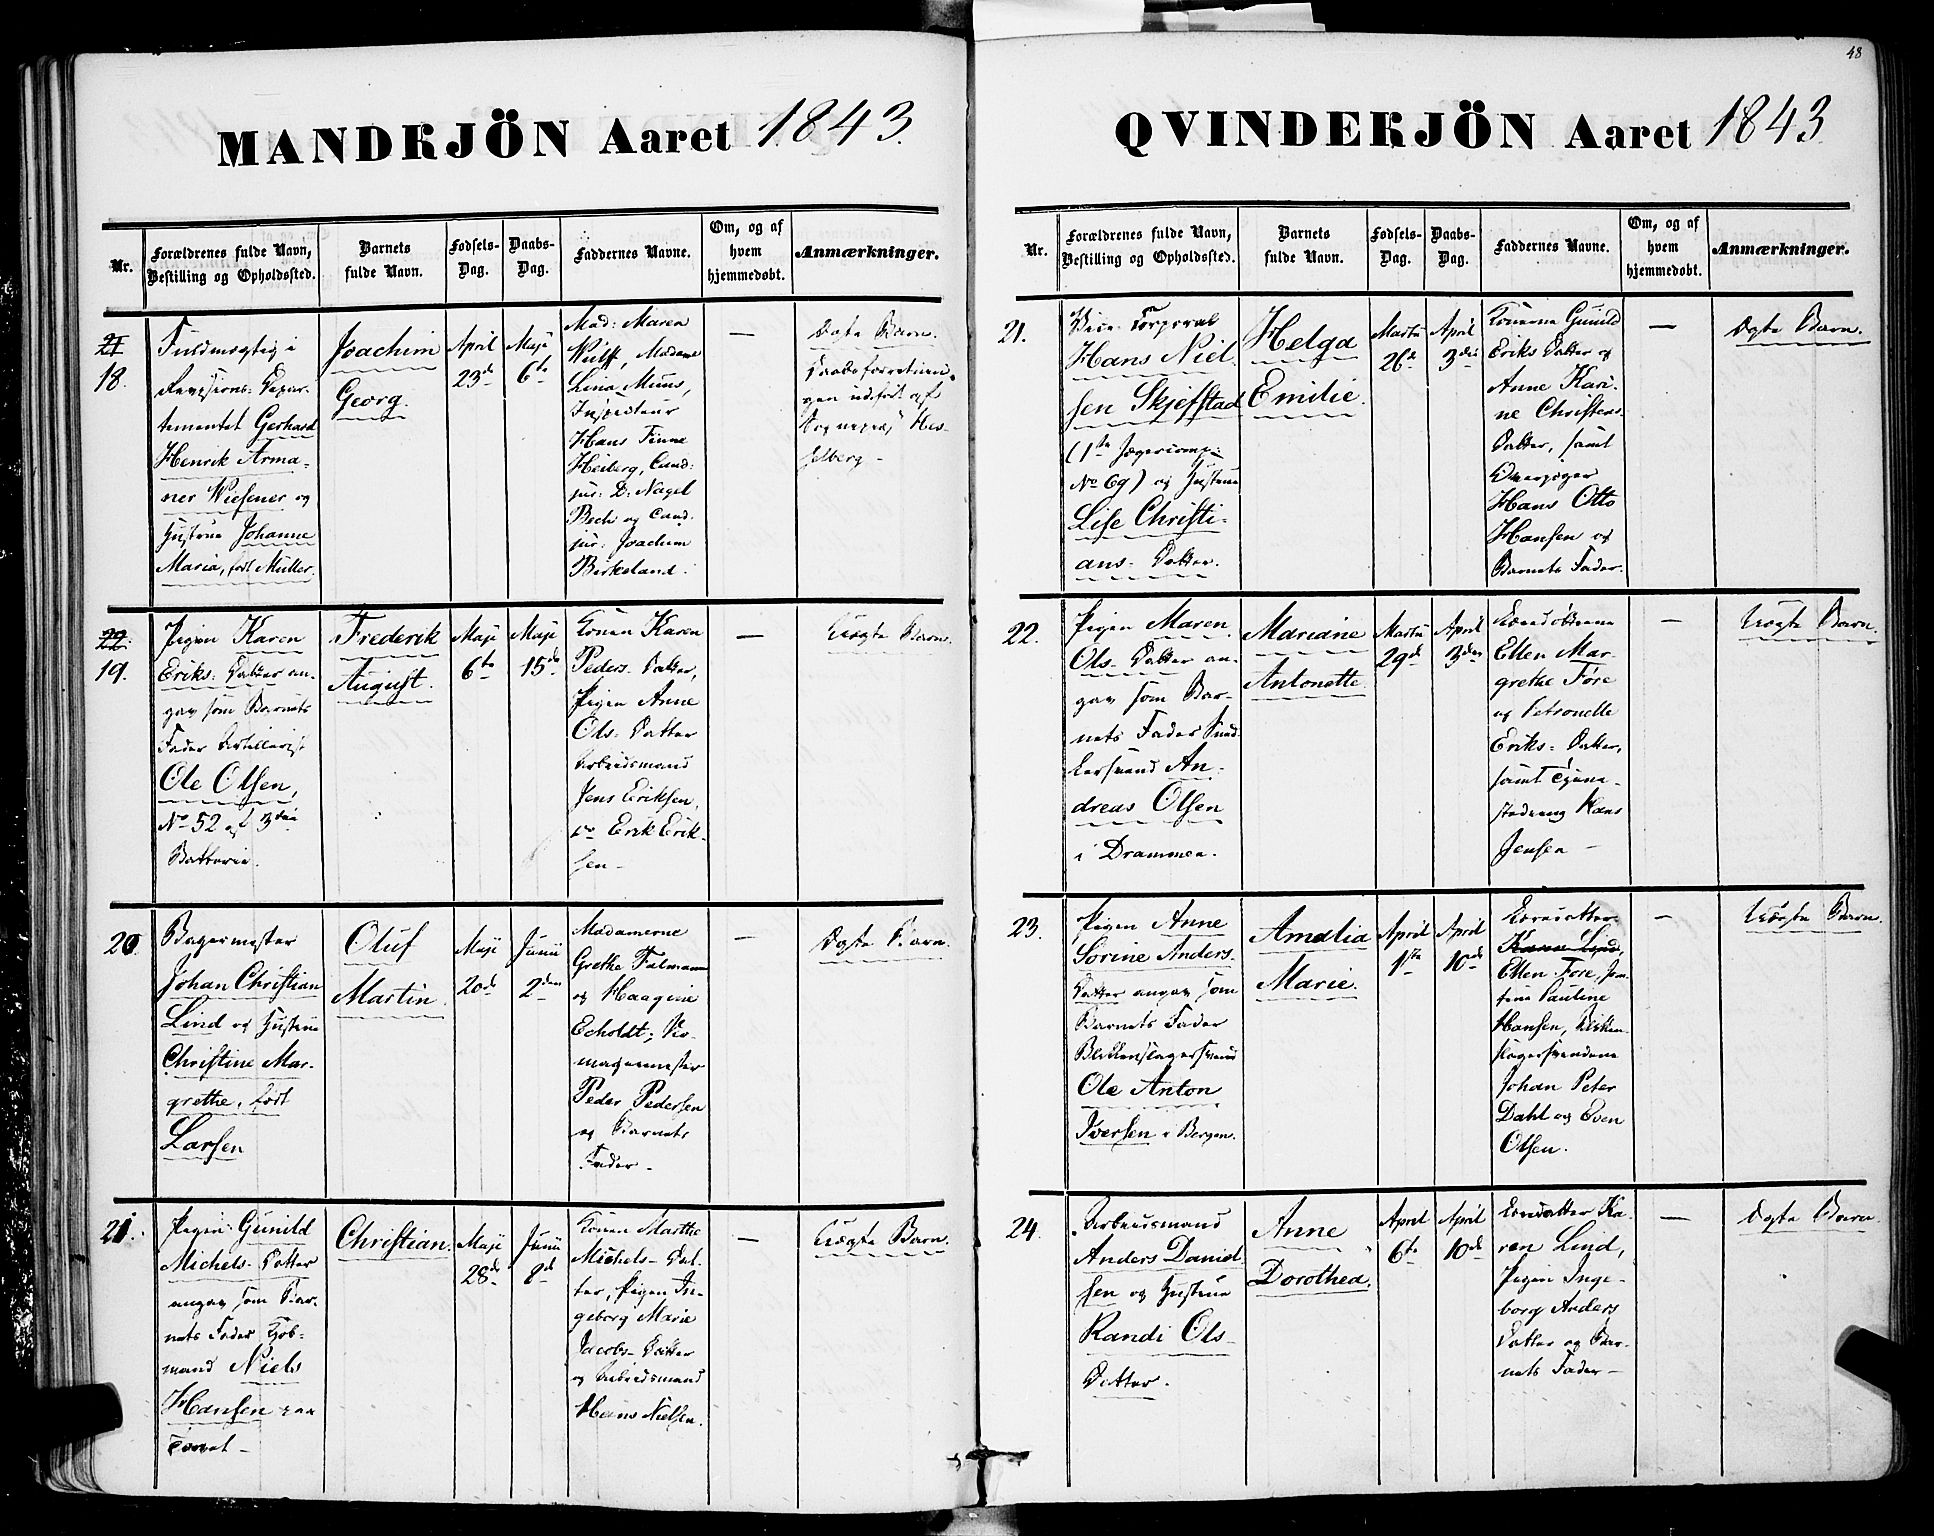 48
MANDKJÖN Aaret 1843.
Nr.
Forældrenes fulde Navn,
Bestilling og Opholdssted.
Barnets
fulde Navn.
Fødsels-
Dag.
Daabs-
Dag.
Faddernes Navne.
Om, og af
hvem
hjemmedøbt.
Anmærkninger.
21
18
Fuldmægtig i
Revisions-Depar-
tementet Gerhard
Henrik Arma-
ner Wiesener og
Hustrue Johanne
Maria, født Müller.
Joachim
Georg.
April
23de
Maji
6te
Mad: Maren
Wulff, Madame
Lina Muus,
Inspecteur
Hans Finne
Heiberg, Cand:
jur: D: Nagel
Bech og Cand.
jur: Joachim
Birkeland.
—
Ægte Barn.
Daabsforretnin-
gen udført af
Sognepr. Hes-
selberg -
22.
19.
Pigen Karen
Eriks-Datter an-
gav som Barnets
Fader Artillerist
Ole Olsen,
No 52 af 3die
Batterie.
Frederik
August.
Maji
6te
Maji
15de
Konen Karen
Peders-Datter,
Pigen Anne
Ols-Datter
Arbeidsmand
Jens Eriksen,
do Erik Erik-
sen -
—
Uægte Barn.
20.
Bagermester
Johan Christian
Lind og Hustrue
Christine Mar-
grethe, født
Larsen
Oluf
Martin.
Maji
20de
Junii
2den
Madamerne
Grethe Falmann
og Haagine
Echoldt,
magermester
Peder Pedersen
og Barnets
Fader -
—
Ægte Barn.
21.
Pigen Gunild
Michels-Datter
angav som Bar-
nets Fader
mand Niels
Hansen paa
Torvet -
Christian.
Maji
28de
Junii
8de
Konen Marthe
Michels-Dat-
ter, Pigen In-
geborg Marie
Jacobs-Datter
og Arbeidsmand
Hans Nielsen.
—
Uægte Barn.
QVINDEKJÖN Aaret 1843
Nr.
Forældrenes fulde Navn,
Bestilling og Opholdssted.
Barnets
fulde Navn.
Fødsels-
Dag.
Daabs-
Dag.
Faddernes Navne.
Om, og af
hvem
hjemmedøbt.
Anmærkninger.
21.
Vice-Corporal
Hans Niel
sen Skjefstad
(1te Jægercomp:
No 69) og Hustrue
Lise Christi-
ans-Datter.
Helga
Emilie.
Marts
26de
April
3die
Konerne Gunild
Eriks Datter og
Anne Kari-
ne Christens-
Datter, samt
Overjæger
Hans Otto
Hansen og
Barnets Fader.
—
Ægte Barn.
22.
Pigen Maren
Ols-Datter an-
gav som Bar-
nets Fader Sned-
kersvend An-
dreas Olsen
i Drammen.
Mariane
Antonette.
Marts
29de
April
3die
Læredøttrene
Ellen Mar-
grethe Fore
og Petronelle
Eriks-Datter,
samt
Hans
Jensen -
—
Uægte Barn.
23.
Pigen Anne
Sorine Anders-
Datter angav som
Barnets Fader
Blikkenslagersvend
Ole Anton
Iversen i Bergen.
Amalia
Marie.
April
1ste
April
10de
Læredatter
Karen Lind,
Ellen Fore, Jom-
frue Pauline
Hansen, Blikken-
slagersvendene
Johan Peter
Dahl og Even
Olsen.
—
Uægte Barn.
24.
Arbeidsmand
Anders Daniel-
sen og Hustrue
Randi Ols-
Datter.
Anne
Dorothea.
April
6te
April
10de
Læredatter Ka-
ren Lind,
Pigen Inge-
borg Anders
Datter og Bar-
nets Fader -
—
Ægte Barn.